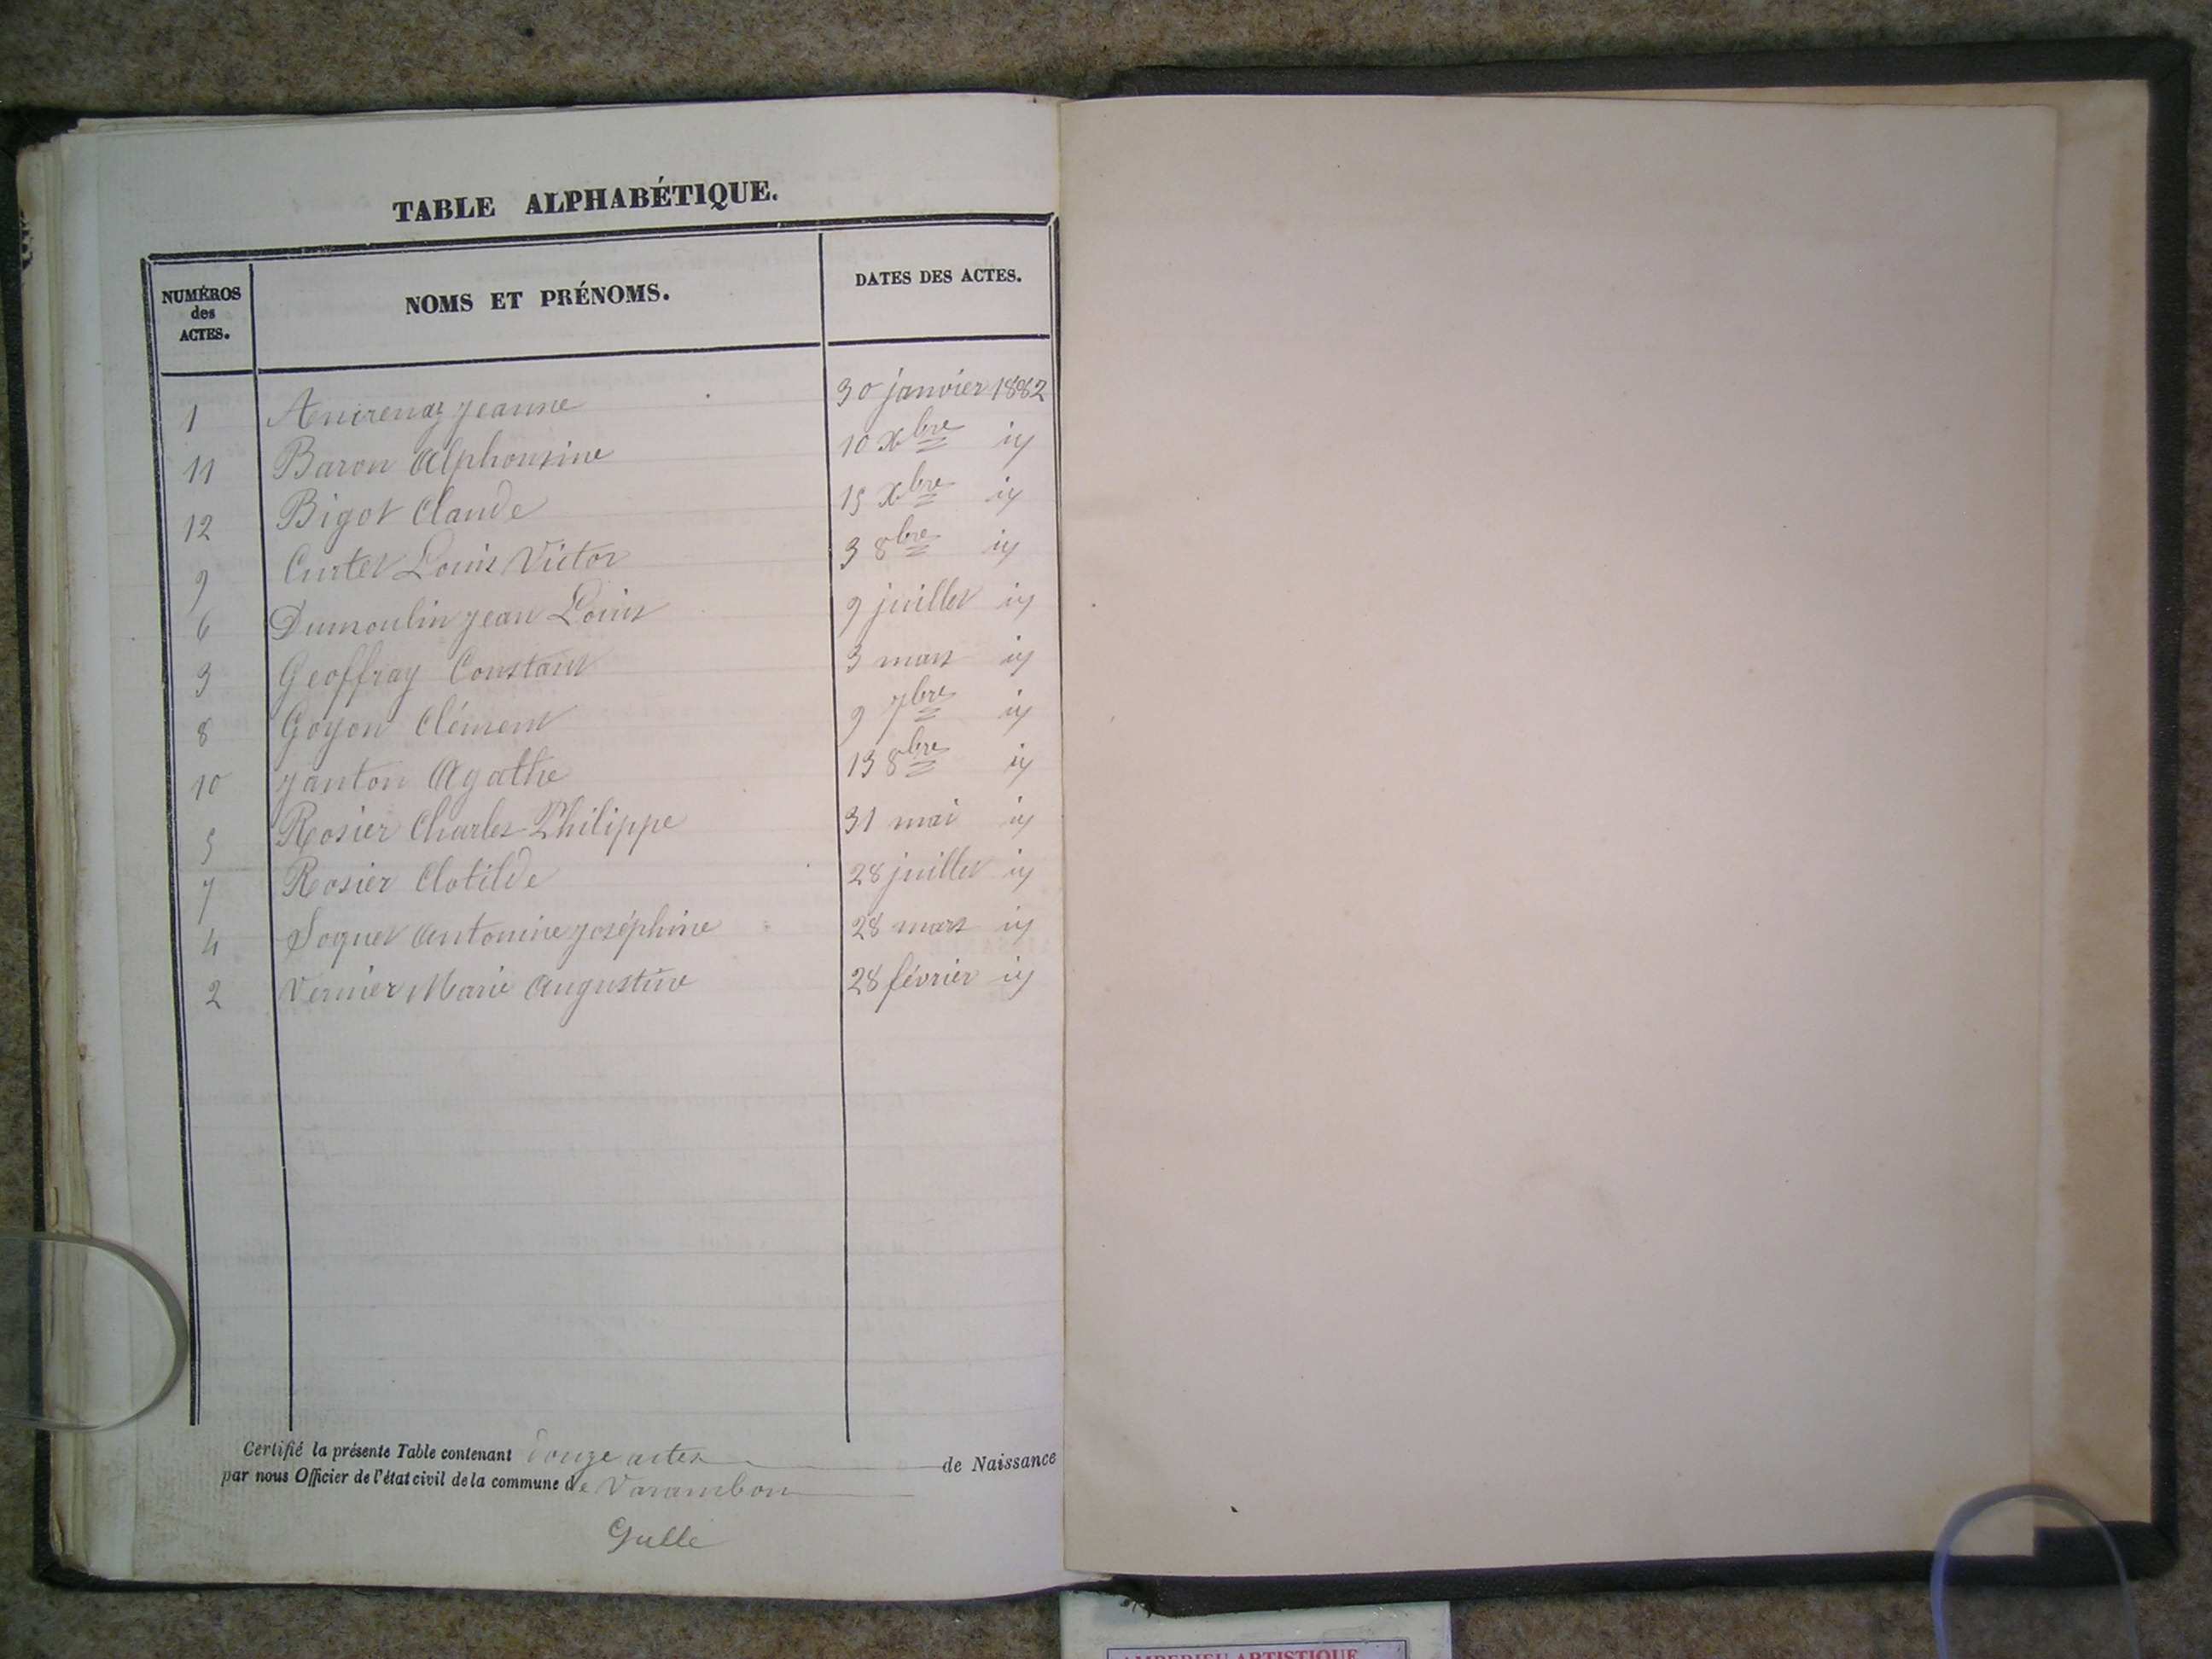 TABLE ALPHABÉTIQUE.
NUMÉROS des ACTES. NOMS ET PRÉNOMS. DATES DES ACTES.
1 Jeanne 30 janvier 1882
11 Baron Alphonsine 10 Xbre id
12 Bigot Claude 15 Xbre id
9 Curtet Louis Victor 3 8bre id
6 Dumoulin Jean Louis 9 juillet id
3 Geoffray Constant 3 mars id
8 Goyon Clément 9 7bre id
10 Janton Agathe 13 8bre id
5 Rosier Charles Philippe 31 mai id
7 Rosier Clotilde 28 juillet id
4 Soquet Antonine Joséphine 28 mars id
2 Vernier Marie Augustine 28 février id
Certifié la présente Table contenant douze actes de Naissance
par nous Officier de l'état civil de la commune de Varambon
Gulle
AMBERIEU ARTISTIQUE